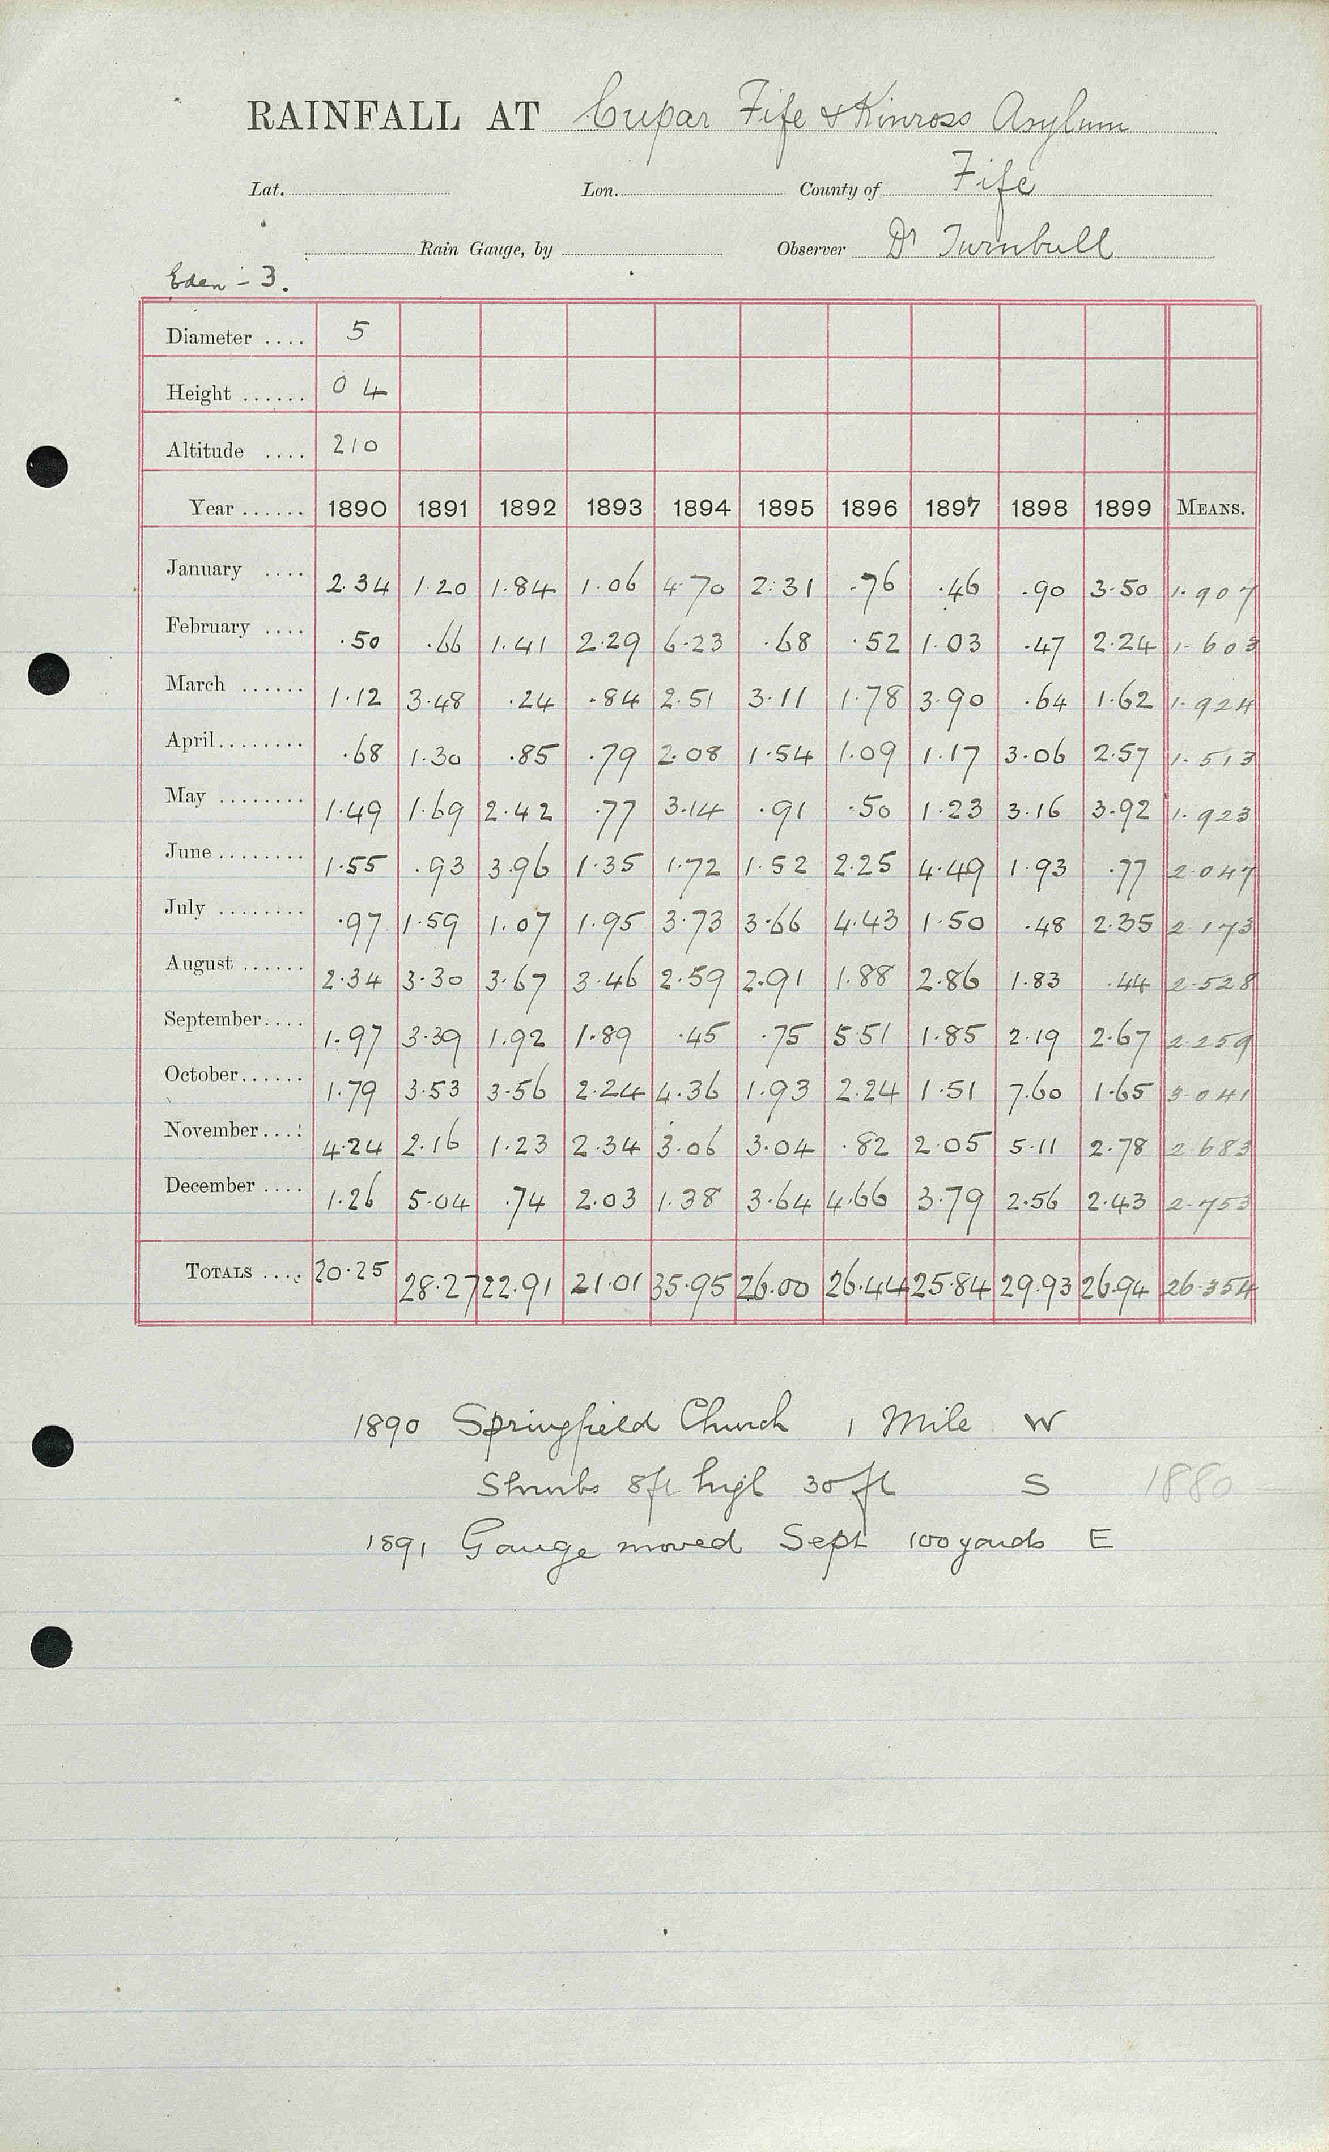 RAINFALL AT Cupar Fife & Kinross Asylum
Lat. Lon. County of Fife
Rain Gauge, by Observer Dr Turnbull
Eden - 3.
Diameter .... 5
Height ...... 0 4
Altitude .... 210
Year ...... 1890 1891 1892 1893 1894 1895 1896 1897 1898 1899 MEANS.
January .... 2.34 1.20 1.84 1.06 4.70 2.31 .76 .46 .90 3.50 1.907
February .... .50 .66 1.41 2.29 6.23 .68 .52 1.03 .47 2.24 1.603
March ...... 1.12 3.48 .24 .84 2.51 3.11 1.78 3.90 .64 1.62 1.924
April........ .68 1.30 .85 .79 2.08 1.54 1.09 1.17 3.06 2.57 1.513
May ........ 1.49 1.69 2.42 .77 3.14 .91 .50 1.23 3.16 3.92 1.923
June ........ 1.55 .93 3.96 1.35 1.72 1.52 2.25 4.49 1.93 .77 2.047
July ........ .97 1.59 1.07 1.95 3.73 3.66 4.43 1.50 .48 2.35 2.173
August ...... 2.34 3.30 3.67 3.46 2.59 2.91 1.88 2.86 1.83 .44 2.528
September.... 1.97 3.39 1.92 1.89 .45 .75 5.51 1.85 2.19 2.67 2.259
October...... 1.79 3.53 3.56 2.24 4.36 1.93 2.24 1.51 7.60 1.65 3.041
November.... 4.24 2.16 1.23 2.34 3.06 3.04 .82 2.05 5.11 2.78 2.683
December .... 1.26 5.04 .74 2.03 1.38 3.64 4.66 3.79 2.56 2.43 2.753
TOTALS .... 20.25 28.27 22.91 21.01 35.95 26.00 26.44 25.84 29.93 26.94 26.354
1890 Springfield Church 1 Mile W
Shrubs 8ft high 30 ft S 1880
1891 Gauge moved Sept 100 yards E